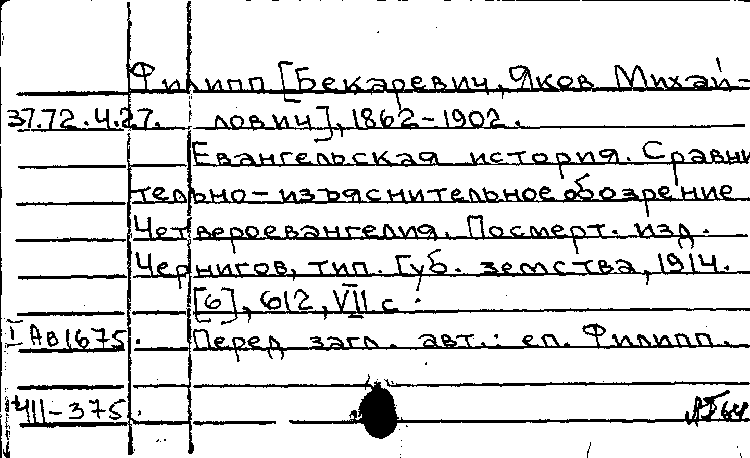 Филипп [Бекаревич, Яков Михай-
37.72.4.27. лович], 1862-1902.
Евангельская история. Сравни
тельно-изъяснительное обозрение
Четвероевангелия. Посмерт. изд.
Чернигов, тип. Губ. земства, 1914.
[6], 612, VII с.
I АВ1675. Перед загл. авт.: еп. Филипп.
ЧІІІ-375.